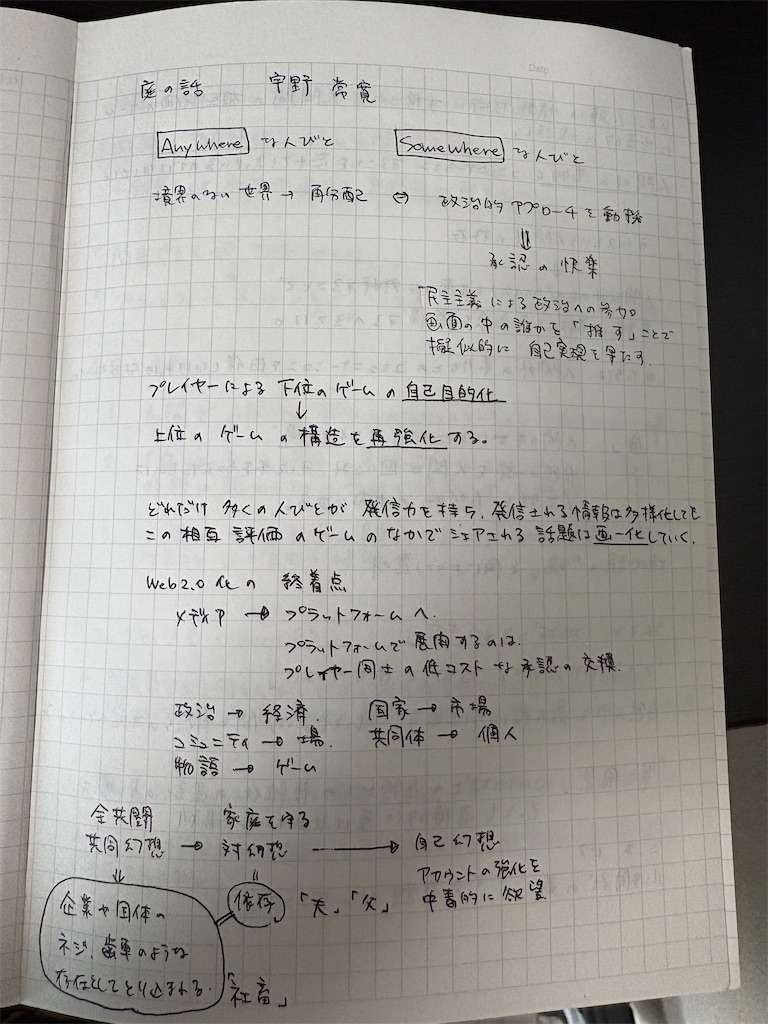 Date
庭の話 宇野 常寛
Anywhere な人びと Somewhere な人びと
境界のない世界 → 再分配 ⇔ 政治的アプローチを動機
⇓
承認の快楽
「民主主義による政治への参加
画面の中の誰かを「推す」ことで
擬似的に 自己実現を果たす.
プレイヤーによる 下位のゲームの自己目的化
↓
上位の ゲームの 構造を再強化する。
どれだけ 多くの人びとが 発信力を持ち、発信される情報は多様化しても
この 相互 評価 のゲームの なかで シェアされる 話題は画一化していく.
Web2.0 化の 終着点
メディア → プラットフォームへ.
プラットフォームで 展開するのは.
プレイヤー同士の低コスト な 承認の 交換.
政治 → 経済. 国家 → 市場
コミュニティ → 場. 共同体 → 個人
物語 → ゲーム
全共闘 家庭を守る
共同幻想 → 対幻想 → 自己幻想
⇓ 〃 アカウントの強化を
依存 「夫」「父」 中毒的に 欲望
企業や団体の
ネジ、歯車のような
存在としてとり込まれる.
「社畜」